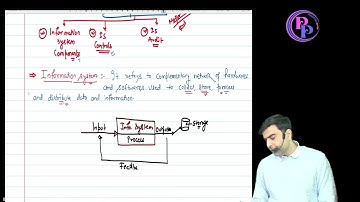 Information System Components
IS Controls
IS Audit
⇒ Information system :- It refers to complementary network of hardware
and softwares used to collect, store, process
and distribute data and information.
Input
Info System
Process
Output
storage